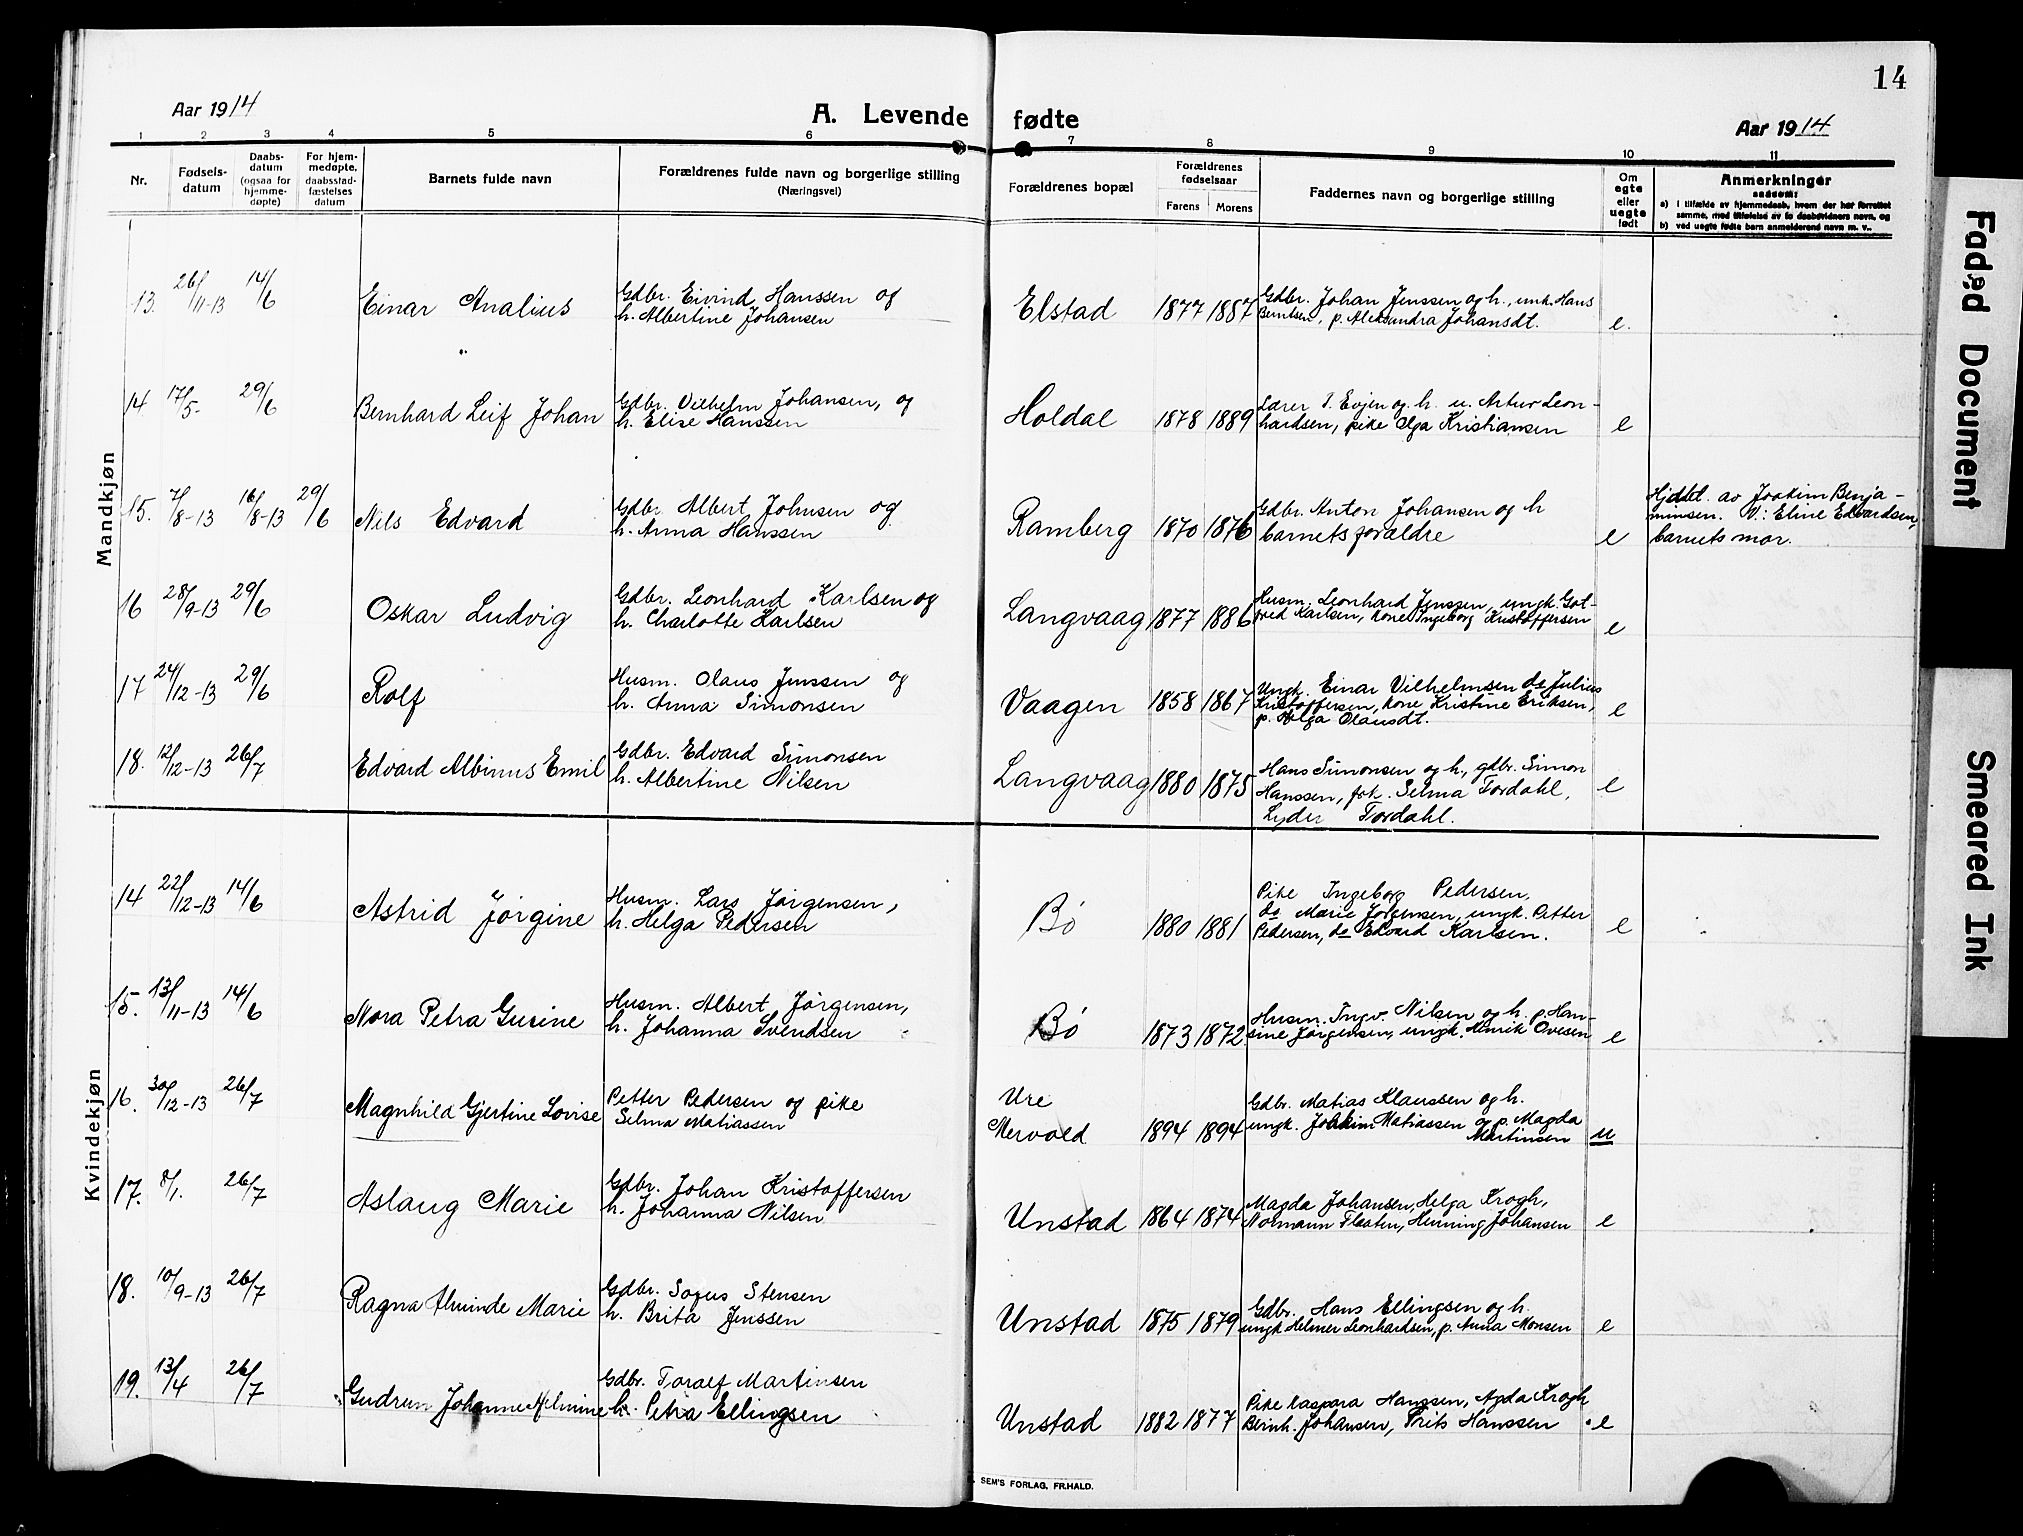 14
Aar 1914
A. Levende fødte
Aar 1914
1 2 3 4 5 6 7 8 9 10 11
Nr.
Fødsels-
datum
Daabs-
datum
(ogsaa for
hjemme-
døpte)
For hjem-
medøpte,
daabsstad-
fæstelses
datum
Barnets fulde navn
Forældrenes fulde navn og borgerlige stilling
(Næringsvei)
Forældrenes bopæl
Forældrenes
fødselsaar
Farens Morens
Faddernes navn og borgerlige stilling
Om
egte
eller
uegte
født
Anmerkninger
saasom:
a) i tilfælde av hjemmedaab, hvem der har forrettet
samme, med tilføielse av to daabsvidners navn, og
b) ved uegte fødte barn anmelderens navn m. v..
Mandkjøn
13. 26/11-13 14/6 Einar Analius
Gdbr. Eivind Hanssen og
h. Albertine Johansen
Elstad 1877 1887
Gdbr. Johan Jenssen og h., unk. Hans
Berntsen, p. Aleksandra Johansdt.
e.
14 17/5- 29/6 Bernhard Leif Johan
Gdbr. Vilhelm Johansen, og
h. Elise Hanssen
Holdal 1878 1889
Lærer I. Evjen og h. u. Artur Leon-
hardsen, pike Olga Kristiansen
e
15. 7/8-13 16/8-13 29/6 Nils Edvard
Gdbr. Albert Johnsen og
h. Anna Hanssen
Ramberg 1870 1876
Gdbr. Anton Johansen og h
barnets forældre
e
Hjdøbt. av Joakim Benja-
minsen. V: Eline Edvardsen,
barnets mor.
16 28/9-13 29/6 Oskar Ludvig
Gdbr. Leonhard Karlsen og
h. Charlotte Karlsen
Langvaag 1877 1886
Husm. Leonhard Jenssen, ungk. Got-
fred Karlsen, kone Ingeborg Kristoffersen
e
17 24/12-13 29/6 Rolf
Husm. Olaus Jenssen og
h. Anna Simonsen
Vaagen 1858 1867
Ungk. Einar Vilhelmsen do Julius
Kristoffersen, kone Kristine Eriksen,
p. Helga Olausdt.
e
18. 12/12-13 26/7 Edvard Albinus Emil
Gdbr. Edvard Simonsen
h. Albertine Nilsen
Langvaag 1880 1875
Hans Simonsen og h., gdbr. Simon
Hanssen, frk. Selma Tordahl,
Lyder Tordahl.
e
Kvindekjøn
14 22/12-13 14/6 Astrid Jørgine
Husm. Lars Jørgensen,
h. Helga Pedersen
Bø 1880 1881
Pike Ingeborg Pedersen,
do Marie Jørgensen, ungk. Petter
Pedersen, do Edvard Karlsen.
e
15. 13/11-13 14/6 Nora Petra Gusine
Husm. Albert Jørgensen,
h. Johanna Svendsen
Bø 1873 1872
Husm. Ingv. Nilsen og h. p. Han-
sine Jørgensen, ungk. Henrik Ovesen
e
16. 30/12-13 26/7 Magnhild Gjertine Lovise
Petter Pedersen og pike
Selma Matiassen
Ure
Mervold 1894 1894
Gdbr. Matias Klaussen og h.
ungk. Joakim Matiassen og p. Magda
Martinsen
u
17. 8/1. 26/7 Aslaug Marie
Gdbr. Johan Kristoffersen
h. Johanna Nilsen
Unstad 1864 1874
Magda Johansen, Helga Krogh,
Normann Fleaten, Henning Johansen
e
18. 10/9-13 26/7 Ragna Alminde Marie
Gdbr. Sofus Stensen
h. Brita Jenssen
Unstad 1875 1879
Gdbr. Hans Ellingsen og h.
ungk Helmer Leonhardsen, p. Anna Monsen
e
19. 13/4 26/7 Gudrun Johanne Helmine
Gdbr. Toralf Martinsen
h. Petra Ellingsen
Unstad 1882 1877
Pike Kaspara Hanssen, Agda Krogh
Bernh. Johansen, Frits Hanssen
e
SEM'S FORLAG, FR.HALD.
Faded Document
Smeared Ink